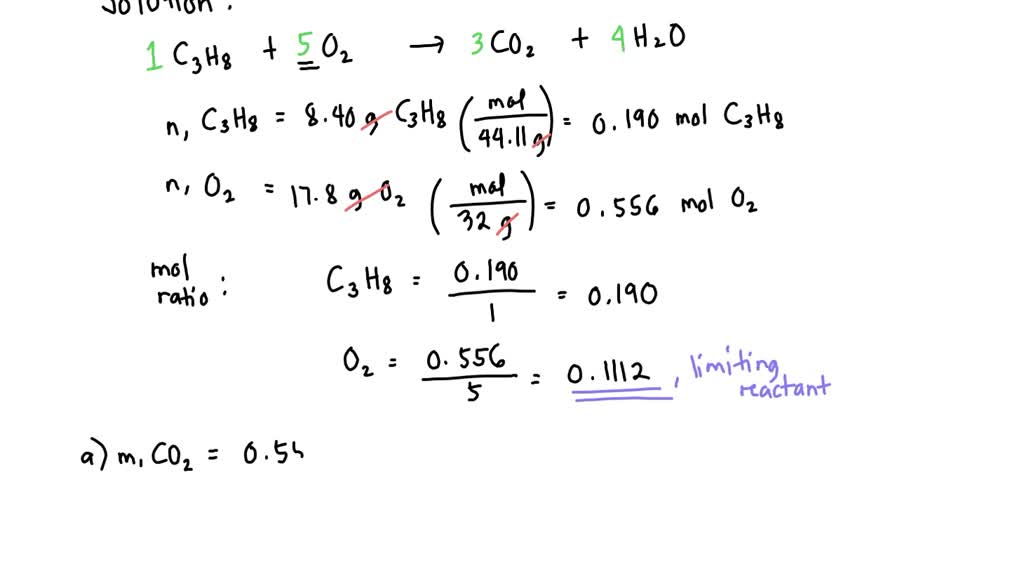 Solution:
1 C₃H₈ + 5 O₂ → 3 CO₂ + 4 H₂O
n, C₃H₈ = 8.40 g C₃H₈ (mol / 44.11 g) = 0.190 mol C₃H₈
n, O₂ = 17.8 g O₂ (mol / 32 g) = 0.556 mol O₂
mol ratio : C₃H₈ = 0.190 / 1 = 0.190
O₂ = 0.556 / 5 = 0.1112, limiting reactant
a) m, CO₂ = 0.5